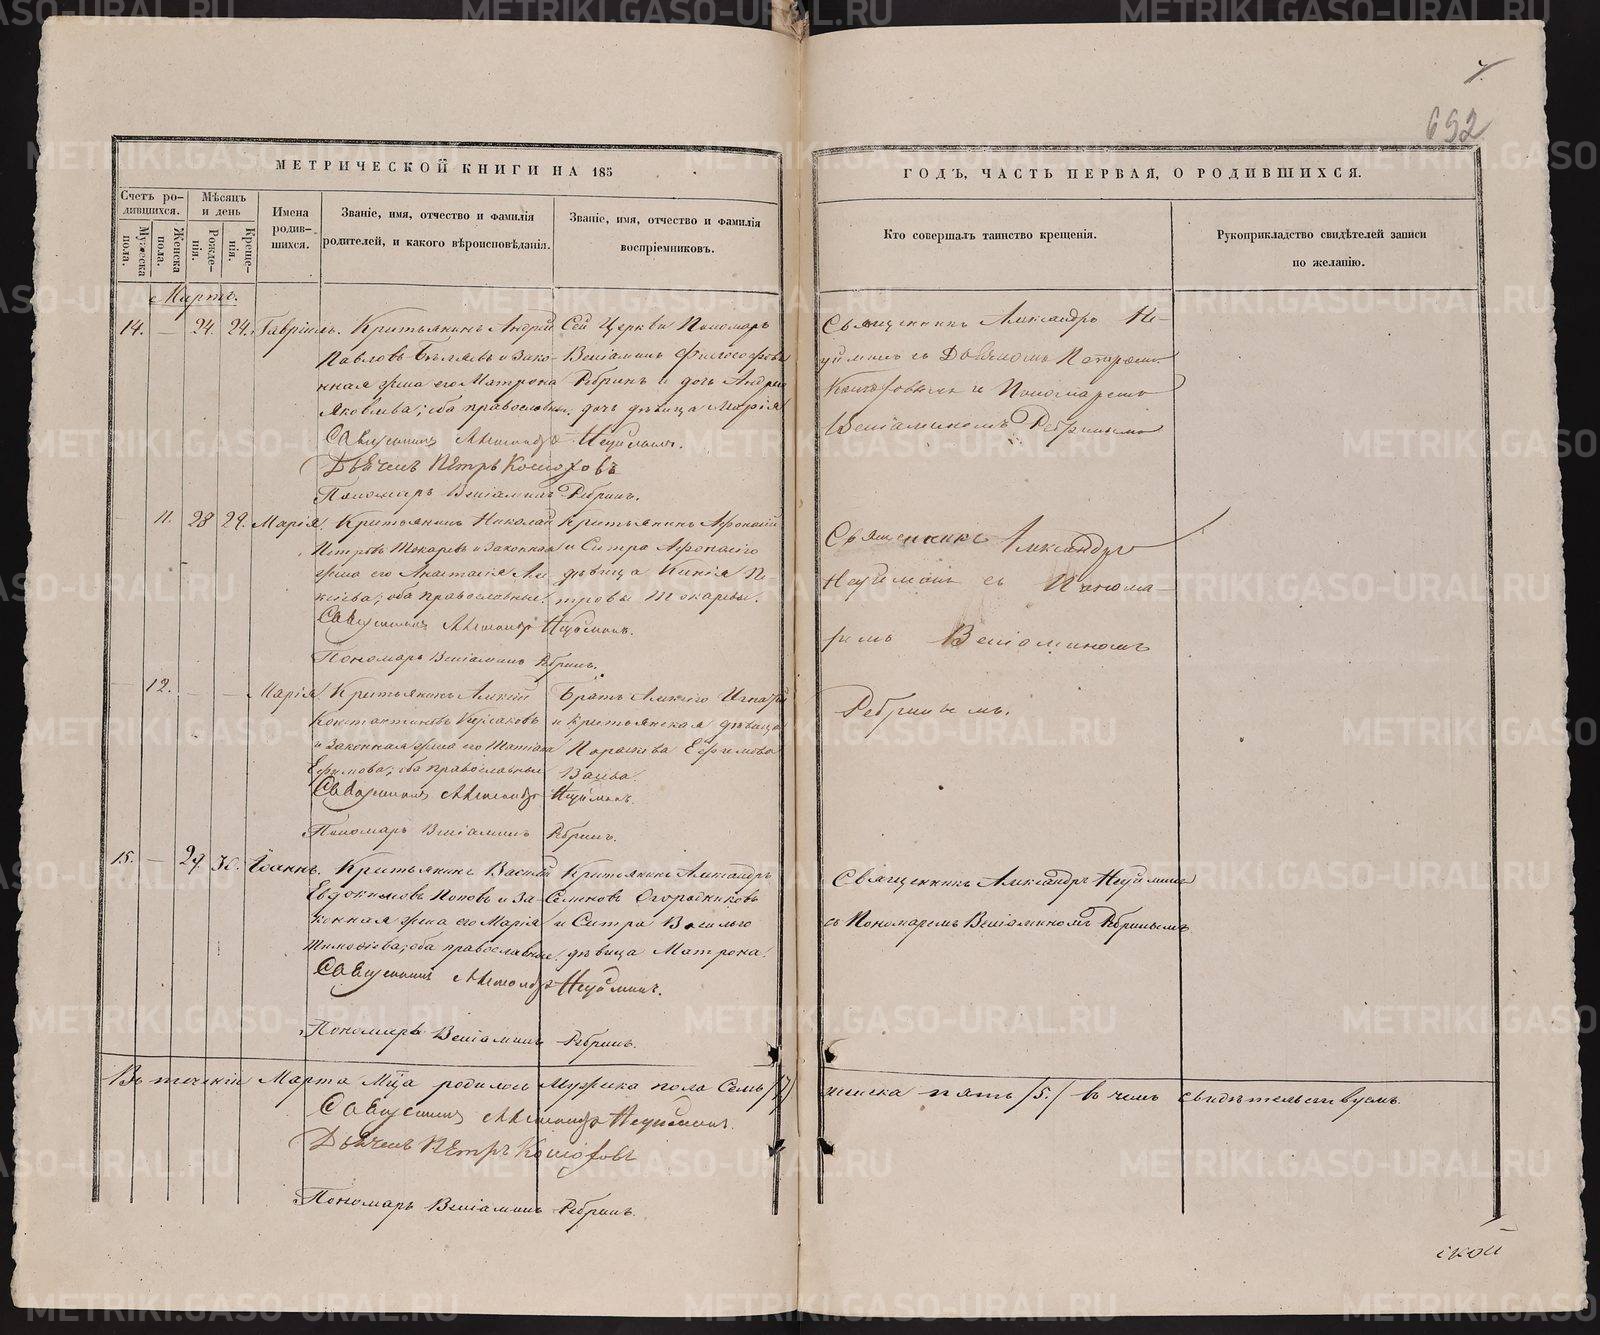 692
МЕТРИЧЕСКОЙ КНИГИ НА 185
ГОДЪ, ЧАСТЬ ПЕРВАЯ, О РОДИВШИХСЯ.
Счетъ ро-
дившихся.
Мужеска
пола.
Женска
пола.
Мѣсяцъ
и день
Рожде-
нія.
Креще-
нія.
Имена
родив-
шихся.
Званіе, имя, отчество и фамилія
родителей, и какого вѣроисповѣданія.
Званіе, имя, отчество и фамилія
воспріемниковъ.
Кто совершалъ таинство крещенія.
Рукоприкладство свидѣтелей записи
по желанію.
Мартъ.
14. — 24. 24. Гавріилъ. Крестьянинъ Андрей
Павловъ Бѣляевъ и зако-
нная жена его Матрона
Яковлева; оба православные.
Сей Церкви Пономарь
Веніаминъ Философовъ
Ребринъ и дочь Андрея
дочь дѣвица Марія
Священникъ Александръ Не-
уйминъ съ Дьячкомъ Петромъ
и Пономаремъ
Веніаминомъ Ребринымъ
Священникъ Александръ Неуйминъ.
Дьячекъ Петръ
Пономарь Веніаминъ Ребринъ.
11. 28 29. Марія. Крестьянинъ Николай
Петровъ Токаревъ и законная
жена его Анастасія Але-
ксіева; оба православные.
Крестьянинъ Афонасій
и Сестра Афонасія
дѣвица Ксенія Пе-
тровы Токаревы.
Священникъ Александръ
Неуйминъ съ Понома-
ремъ Веніаминомъ
Ребринымъ.
Священникъ Александръ Неуйминъ.
Пономарь Веніаминъ Ребринъ.
12. — — Марія. Крестьянинъ Алексій
Константиновъ и законная жена его Татіана
Ефимова; оба православные
Братъ Алексія Игнатій
и крестьянская дѣвица
Параскева Ефимова
Священникъ Александръ Неуйминъ.
Пономарь Веніаминъ Ребринъ.
15. — 29. 30. Іоаннъ. Крестьянинъ Василій
Евдокимовъ Поповъ и за-
конная жена его Марія
Тимофіева; оба православные.
Крестьянинъ Александръ
Семеновъ Огородниковъ
и Сестра Василья
дѣвица Матрона.
Священникъ Александръ Неуйминъ
съ Пономаремъ Веніаминомъ Ребринымъ
Священникъ Александръ Неуйминъ.
Пономарь Веніаминъ Ребринъ.
Въ теченіи Марта Мца родилось Мужеска пола Семь /7/
женска пять /5./ въ чемъ свидѣтельствуемъ.
Священникъ Александръ Неуйминъ.
Дьячекъ Петръ
Пономарь Веніаминъ Ребринъ.
ской
METRIKI.GASO-URAL.RU